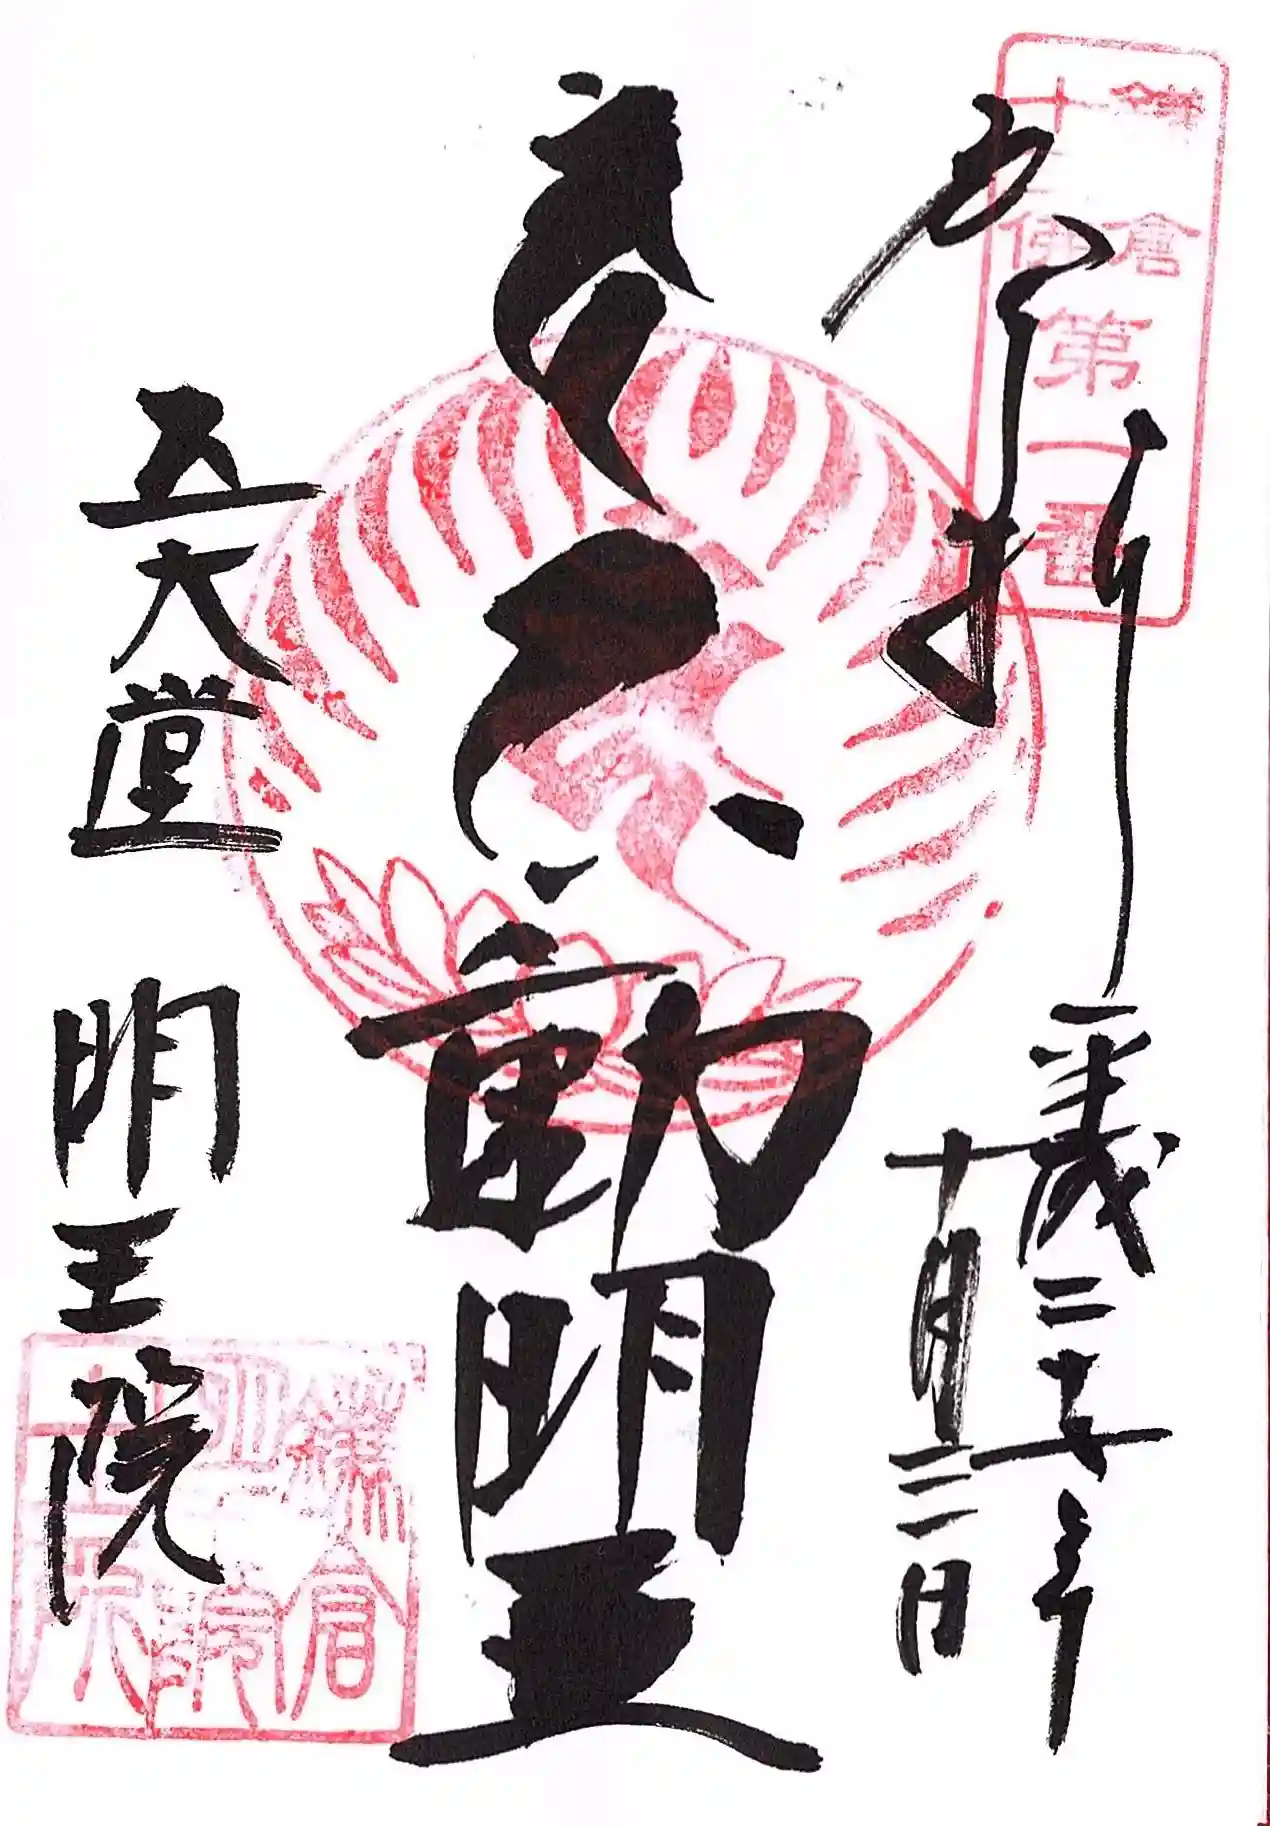 鎌倉
十三佛
第一番
奉拝
平成二十七年
十月三日
不動明王
五大堂 明王院